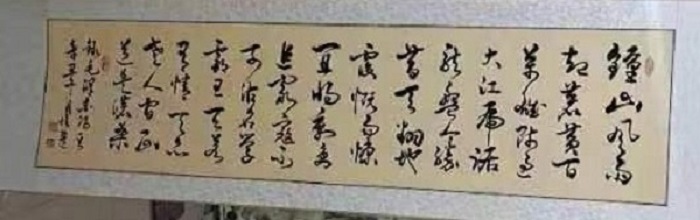 鍾山风雨
起蒼黄百
萬雄师过
大江虎踞
龙盘今胜
昔天翻地
覆慨而慷
宜将剩勇
追穷寇不
可沽名学
霸王天若
有情天亦
老人间正
道是沧桑
錄毛澤東詩